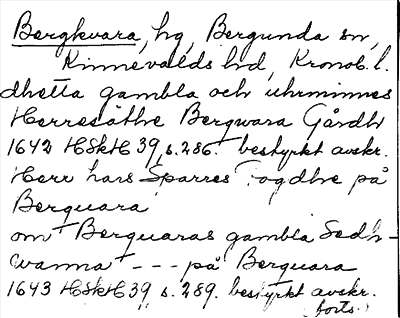 Bergkvara, hg, Bergunda sn,
Kinnevalds hd, Kronob. l.
dhetta gambla och uhrminnes
Herresäthe Bergwara Gårdh
1642 HSkH 39, s. 286. bestyrkt avskr.
Herr Lars Sparres Fogdhe på
Berquara
om Berquaras gambla Sædh-
wanna --- på Berquara
1643 HSkH 39, s. 289. bestyrkt avskr.
forts.